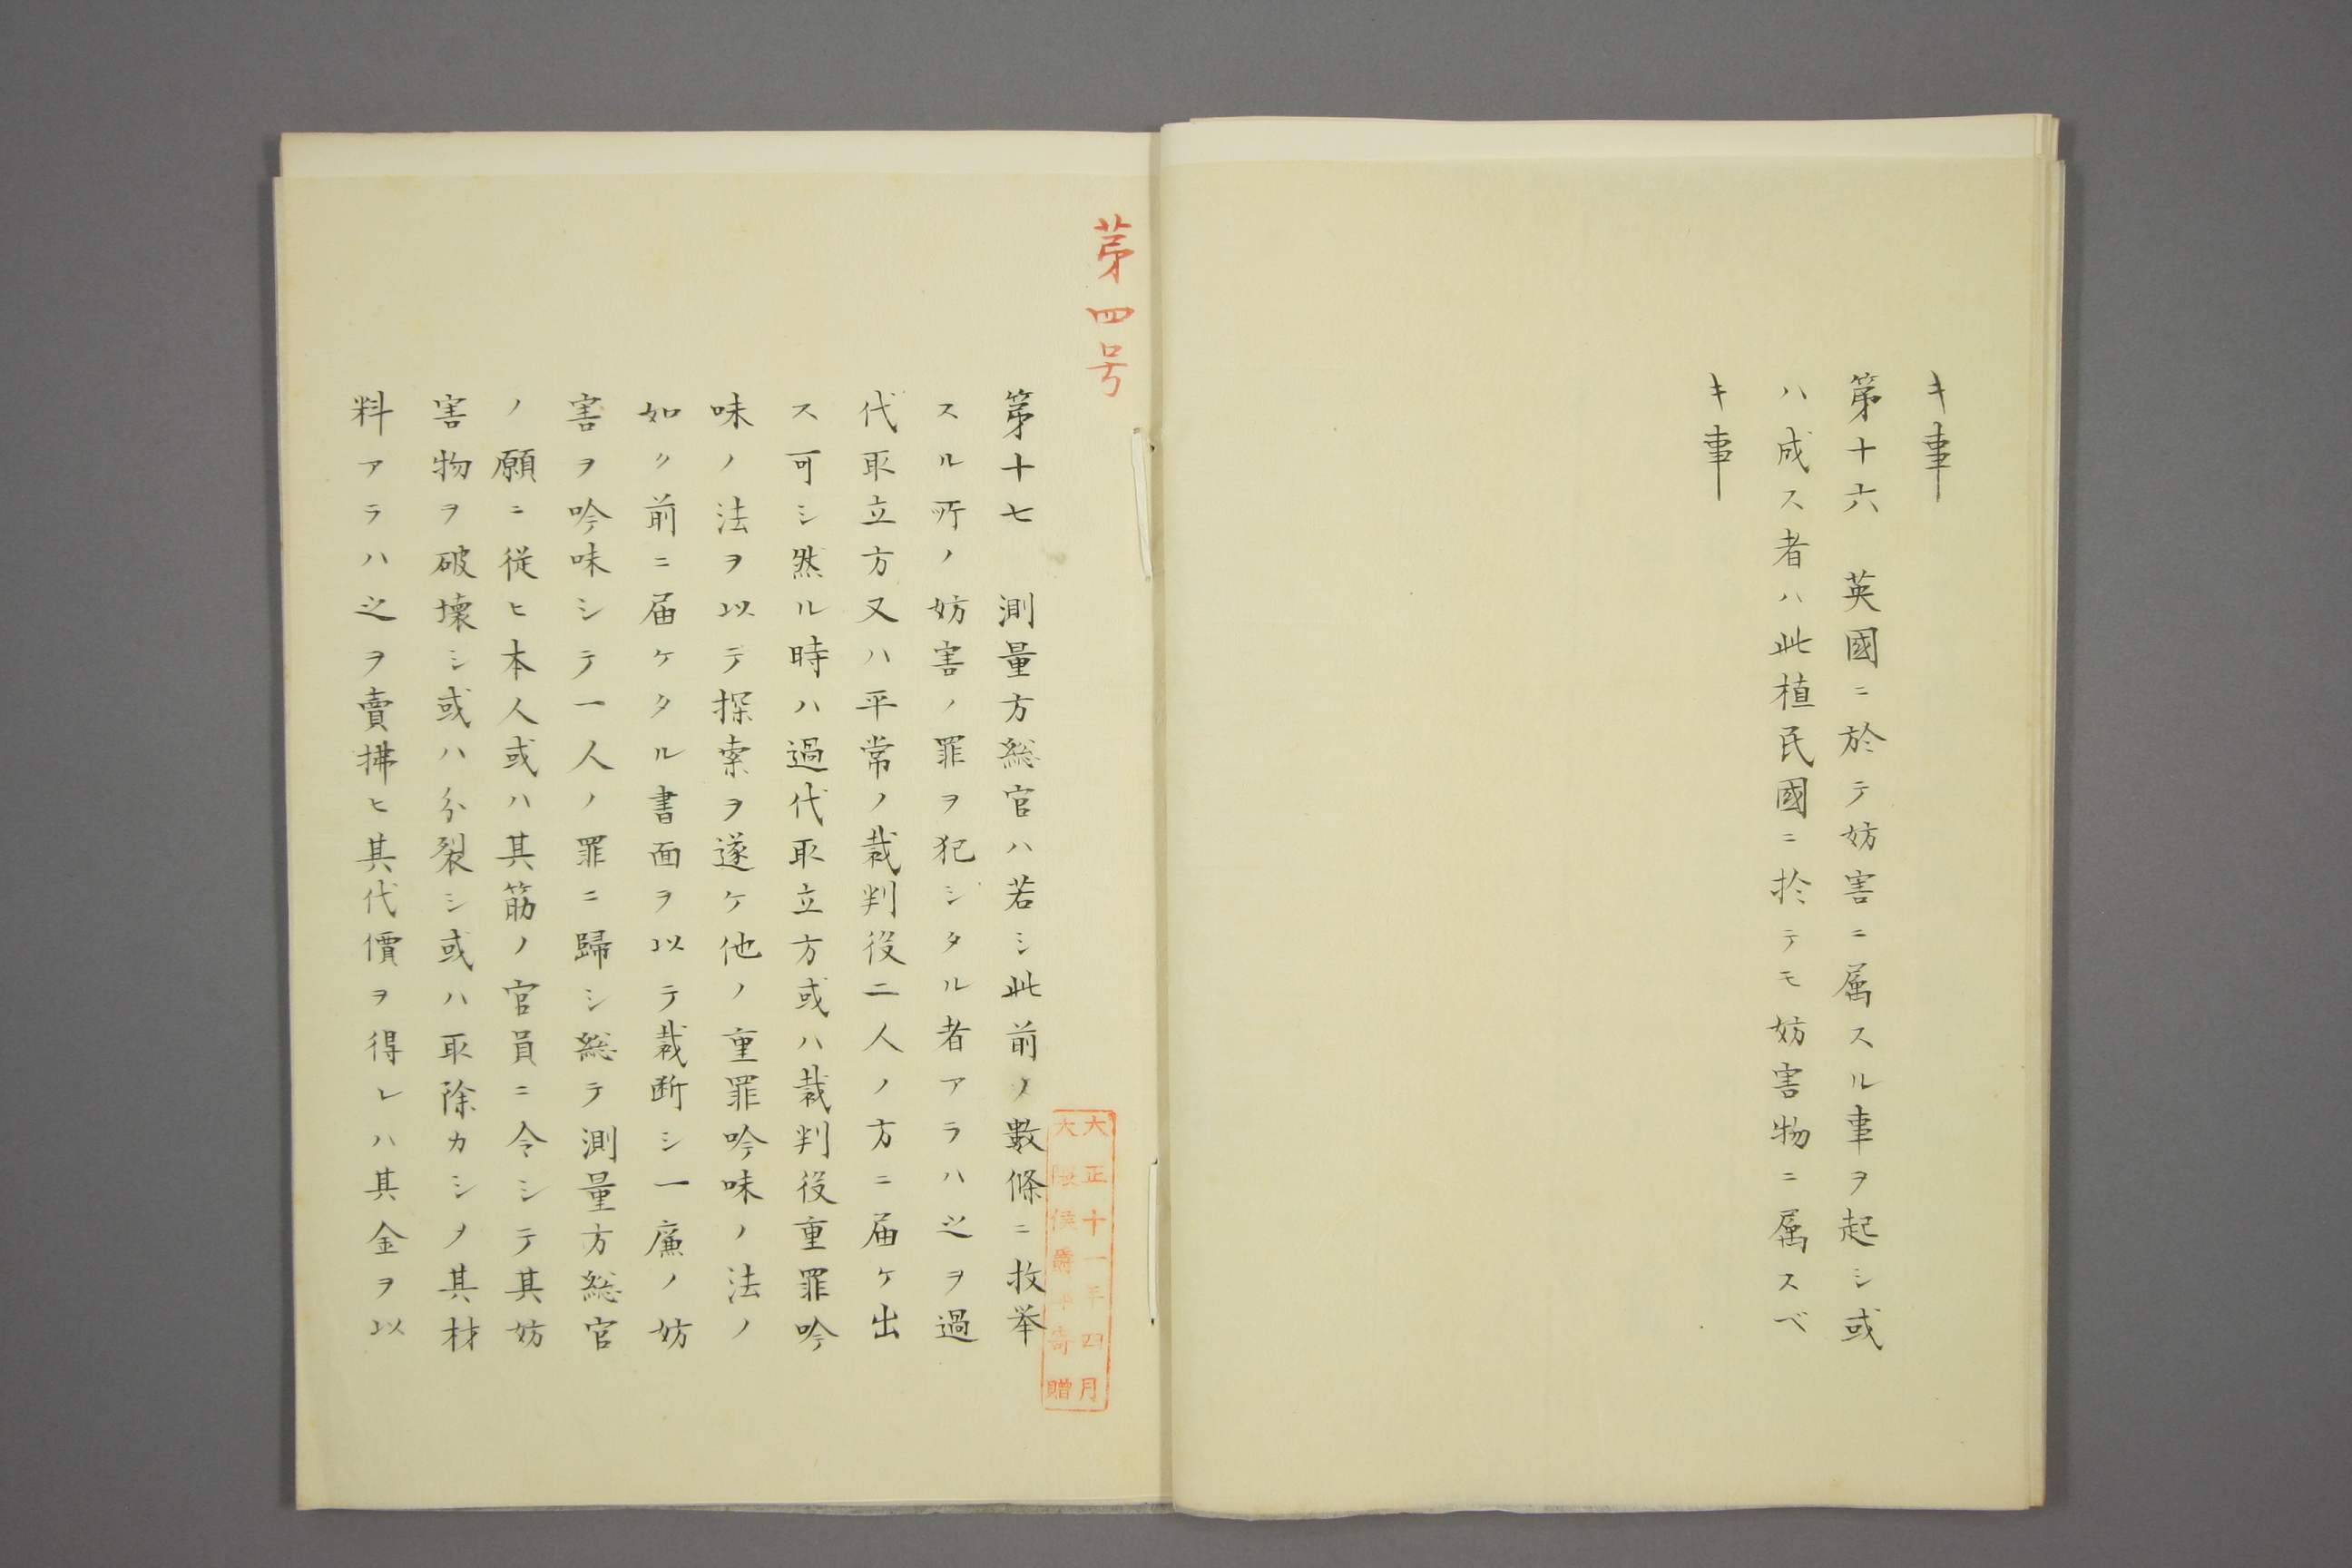 キ事
第十六　英國ニ於テ妨害ニ属スル事ヲ起シ或
ハ成ス者ハ此植民國ニ於テモ妨害物ニ属スベ
キ事
第四号
第十七　測量方総官ハ若シ此前ノ數條ニ枚挙
スル所ノ妨害ノ罪ヲ犯シタル者アラハ之ヲ過
代取立方又ハ平常ノ裁判役二人ノ方ニ届ケ出
ス可シ然ル時ハ過代取立方或ハ裁判役重罪吟
味ノ法ヲ以テ探索ヲ遂ケ他ノ重罪吟味ノ法ノ
如ク前ニ届ケタル書面ヲ以テ裁断シ一廉ノ妨
害ヲ吟味シテ一人ノ罪ニ歸シ総テ測量方総官
ノ願ニ従ヒ本人或ハ其筋ノ官員ニ令シテ其妨
害物ヲ破壊シ或ハ分裂シ或ハ取除カシメ其材
料アラハ之ヲ賣拂ヒ其代價ヲ得レハ其金ヲ以
大正十一年四月
大隈侯爵家寄贈